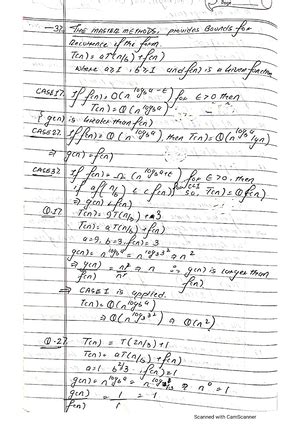 3). THE MASTER METHODS, provides Bounds for
recurrence of the form
T(n) = aT(n/b) + f(n)
where a≥1, b≥1 and f(n) is a given function
CASE1). If f(n) = O(n^log_b a - ε) for ε>0 then
T(n) = Θ(n^log_b a)
{ g(n) is greater than f(n) }
CASE2). If f(n) = Θ(n^log_b a), then T(n) = Θ(n^log_b a lgn)
⇒ g(n) = f(n)
CASE3). If f(n) = Ω(n^log_b a+ε) for ε>0, then
if af(n/b) ≤ c f(n) for c<1 T(n) = Θ(f(n))
⇒ g(n) < f(n)
Q.1). T(n) = 9T(n/3) + 3
T(n) = aT(n/b) + f(n)
a=9, b=3, f(n) = 3
g(n) = n^log_b a = n^log_3 3² ⇒ n²
⇒ g(n)/f(n) = n²/n ⇒ n ∴ g(n) is larger than
f(n)
⇒ CASE I is applied.
T(n) = Θ(n^log_b a)
⇒ Θ(n^log_3 3²) ⇒ Θ(n²)
Q.2). T(n) = T(2n/3) + 1
T(n) = aT(n/b) + f(n)
a=1 b=3/2 f(n)=1
g(n) = n^log_b a = n⁰ = 1
g(n)/f(n) = 1/1 = 1
Scanned with CamScanner